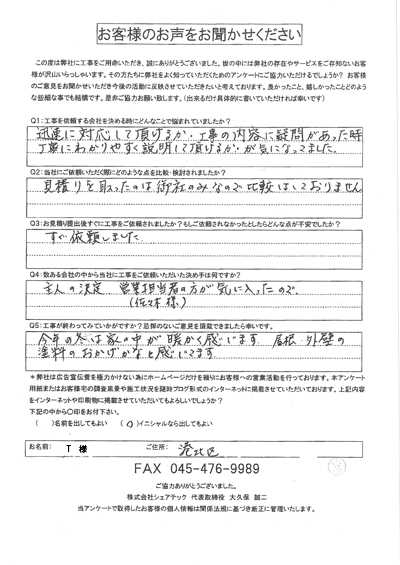 お客様のお声をお聞かせください
この度は弊社に工事をご用命いただき、誠にありがとうございました。世の中には弊社の存在やサービスをご存知ないお客
様が沢山いらっしゃいます。その方たちに弊社をよく知っていただくためのアンケートにご協力いただけるでしょうか? お客様
のご意見をお聞かせいただき今後の活動に反映させていただきたいと考えております。良かったこと、嬉しかったことどのよう
な些細な事でも結構です。是非ご協力お願い致します。(出来るだけ具体的に書いていただければ幸いです)
Q1:工事を依頼する会社を決める時にどんなことで悩まれていましたか?
迅速に対応して頂けるか・工事の内容に疑問があった時
丁寧にわかりやすく説明して頂けるか・が気になってました。
Q2:当社にご依頼いただく際にどのような点を比較・検討されましたか?
見積りを取ったのは御社のみなので比較はしておりません
Q3:お見積り提出後すぐに工事をご依頼されましたか?もしご依頼されなかったとしたらどんな点が不安でしたか?
すぐ依頼しました
Q4:数ある会社の中から当社に工事をご依頼いただいた決め手は何ですか?
主人の決定 営業担当者の方が気に入ったので。
(佐々木様)
Q5:工事が終わってみていかがですか?忌憚のないご意見を頂戴できましたら幸いです。
今年の冬は家の中が暖かく感じます 屋根・外壁の
塗料のおかげかなと感じてます
*弊社は広告宣伝費を極力かけない為にホームページだけを頼りにお客様への営業活動を行っております。本アンケート
用紙またはお客様宅の調査風景や施工状況を随時ブログ形式のインターネットに掲載させていただいております。上記内容
をインターネットや印刷物に掲載させていただいてもよろしいでしょうか?
下記の中から〇印をお付下さい。
( )名前を出してもよい (○)イニシャルなら出してもよい
お名前: T 様 ご住所: 港北区
FAX 045-476-9989
ご協力ありがとうございました。
株式会社シェアテック 代表取締役 大久保 誠二
当アンケートで取得したお客様の個人情報は関係法規に基づき厳正に管理いたします。